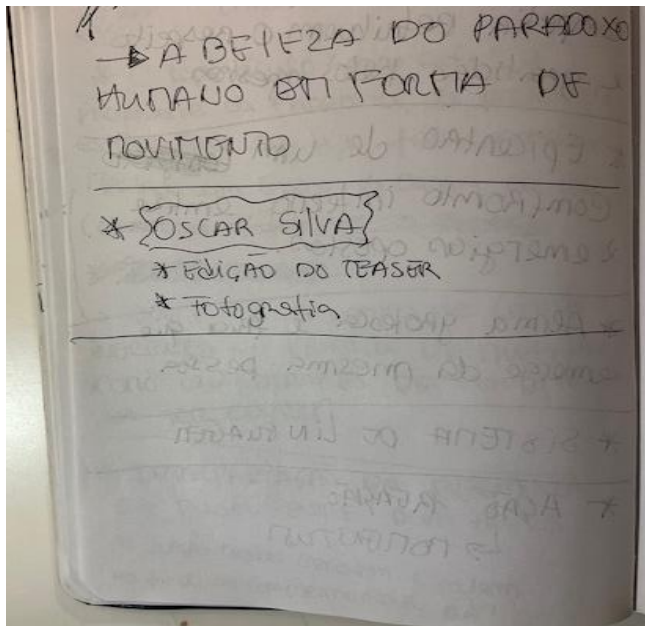 → A BELEZA DO PARADOXO
HUMANO EM FORMA DE
MOVIMENTO
* OSCAR SILVA
* EDIÇÃO DO TEASER
* Fotografia